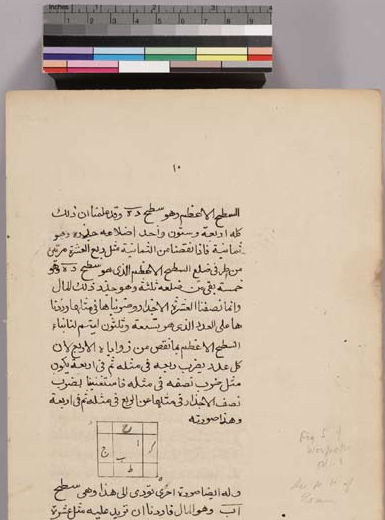 inches 1 2 3
١٠
السطح الاعظم وهو سطح ده وقد علمنا ان ذلك
كله اربعة وستون واحد اضلاعه جذره وهو
ثمانية فاذا نقصنا من الثمانية مثل ربع العشرة مرتين
من طرفى ضلع السطح الاعظم الذى هو سطح ده وهو
خمسة بقى من ضلعه ثلثة وهو جذر ذلك المال
وانما نصفنا العشرة الاجذار وضربناها فى مثلها وزدنا
ها على العدد الذى هو تسعة وثلثون ليتم لنا بناء
السطح الاعظم بما نقص من زواياه الاربع لان
كل عدد يضرب ربعه فى مثله ثم فى اربعة يكون
مثل ضرب نصفه فى مثله فاستغنينا بضرب
نصف الاجذار فى مثلها عن الربع فى مثله ثم فى اربعة
وهذا صورته
ح
ب
ط
وله ايضا صورة اخرى تؤدى الى هذا وهى سطح
آب وهو المال فاردنا ان نزيد عليه مثل عشرة